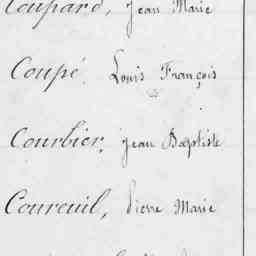 Coupard, Jean Marie
Coupé, Louis François
Courbier, Jean Baptiste
Coureuil, Pierre Marie